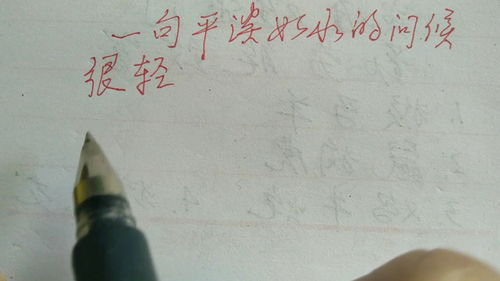 一句平淡如水的问候
很轻